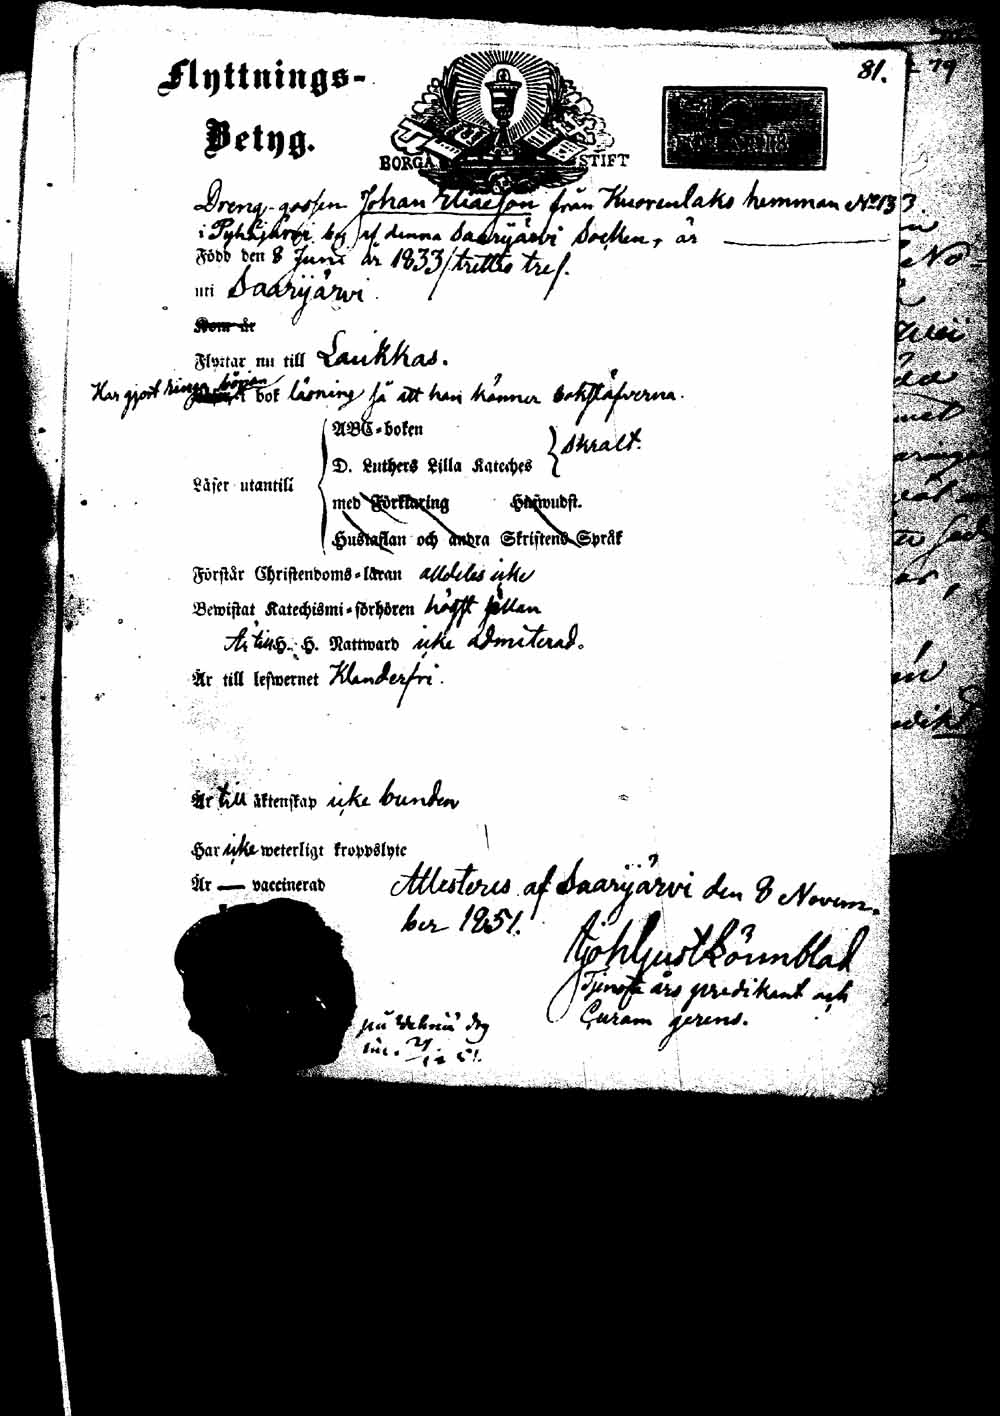 81.
79
Flyttnings-
Betyg.
BORGÅ STIFT
Dreng-gossen Johan Eliaeson från Kuorenlaks hemman No 133
i Pyhäjärvi by af denna Saarijärvi Socken, är
Född den 8 Juni år 1833/trettio tre/.
uti Saarijärvi.
Kom år
Flyttar nu till Laukkas.
Har gjort ringa början i bok läsning så att han känner bokstäfverna.
ABC-boken
D. Luthers Lilla Kateches
skralt.
Läser utantill
med Förklaring Huswudst.
Hustaflan och andra Skriftens Språk
Förstår Christendoms-läran alldeles icke
Bewistat Katechismi-förhören högst sällan
Är till H. H. Nattward icke admitterad.
Är till lefwernet Klanderfri.
Är till äktenskap icke bunden
Har icke weterligt kroppslyte
Är — vaccinerad
Attesteras af Saarijärvi den 8 Novem-
ber 1851.
Joh Gust Rönnblad
Tjenste års predikant och
Curam gerens.